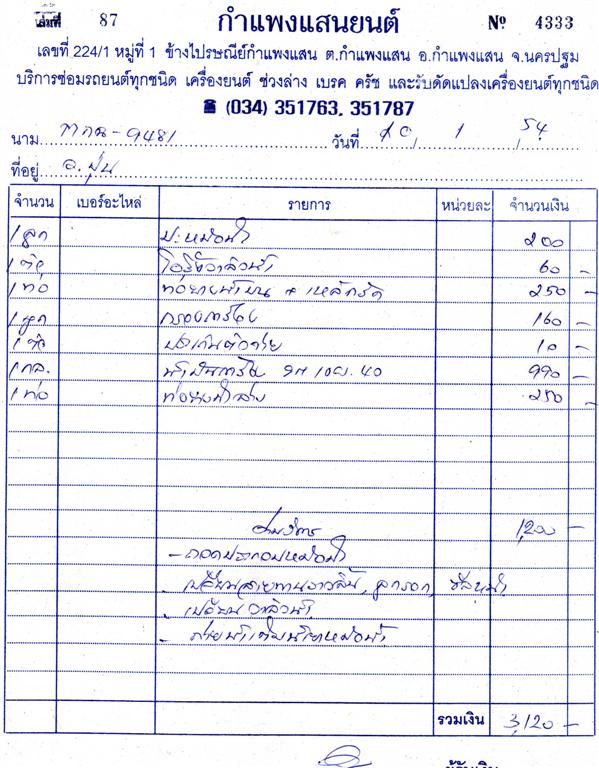 เล่มที่ 87 กำแพงแสนยนต์ Nº 4333
เลขที่ 224/1 หมู่ที่ 1 ข้างไปรษณีย์กำแพงแสน ต.กำแพงแสน อ.กำแพงแสน จ.นครปฐม
บริการซ่อมรถยนต์ทุกชนิด เครื่องยนต์ ช่วงล่าง เบรค ครัช และรับดัดแปลงเครื่องยนต์ทุกชนิด
☎ (034) 351763, 351787
นาม 9481 วันที่ 1 54
ที่อยู่ อ.ปุ่น
จำนวน เบอร์อะไหล่ รายการ หน่วยละ จำนวนเงิน
1 ลูก ฝาหม้อน้ำ 200
1 ตัว วาล์วน้ำ 60 –
1 ท่อ 250 –
1 ลูก กรองเครื่อง 160 –
1 ตัว 10 –
1 กล. น้ำมันเครื่อง 40 990 –
1 ท่อ ท่อยางน้ำล่าง 250 –
ค่าบริการ 1,200 –
- ถอดประกอบหม้อน้ำ
- เปลี่ยนสายพาน ลูกรอก
- เปลี่ยนวาล์วน้ำ
- ถ่ายน้ำ เติมน้ำยาหม้อน้ำ
รวมเงิน 3,120 –
ผู้รับเงิน